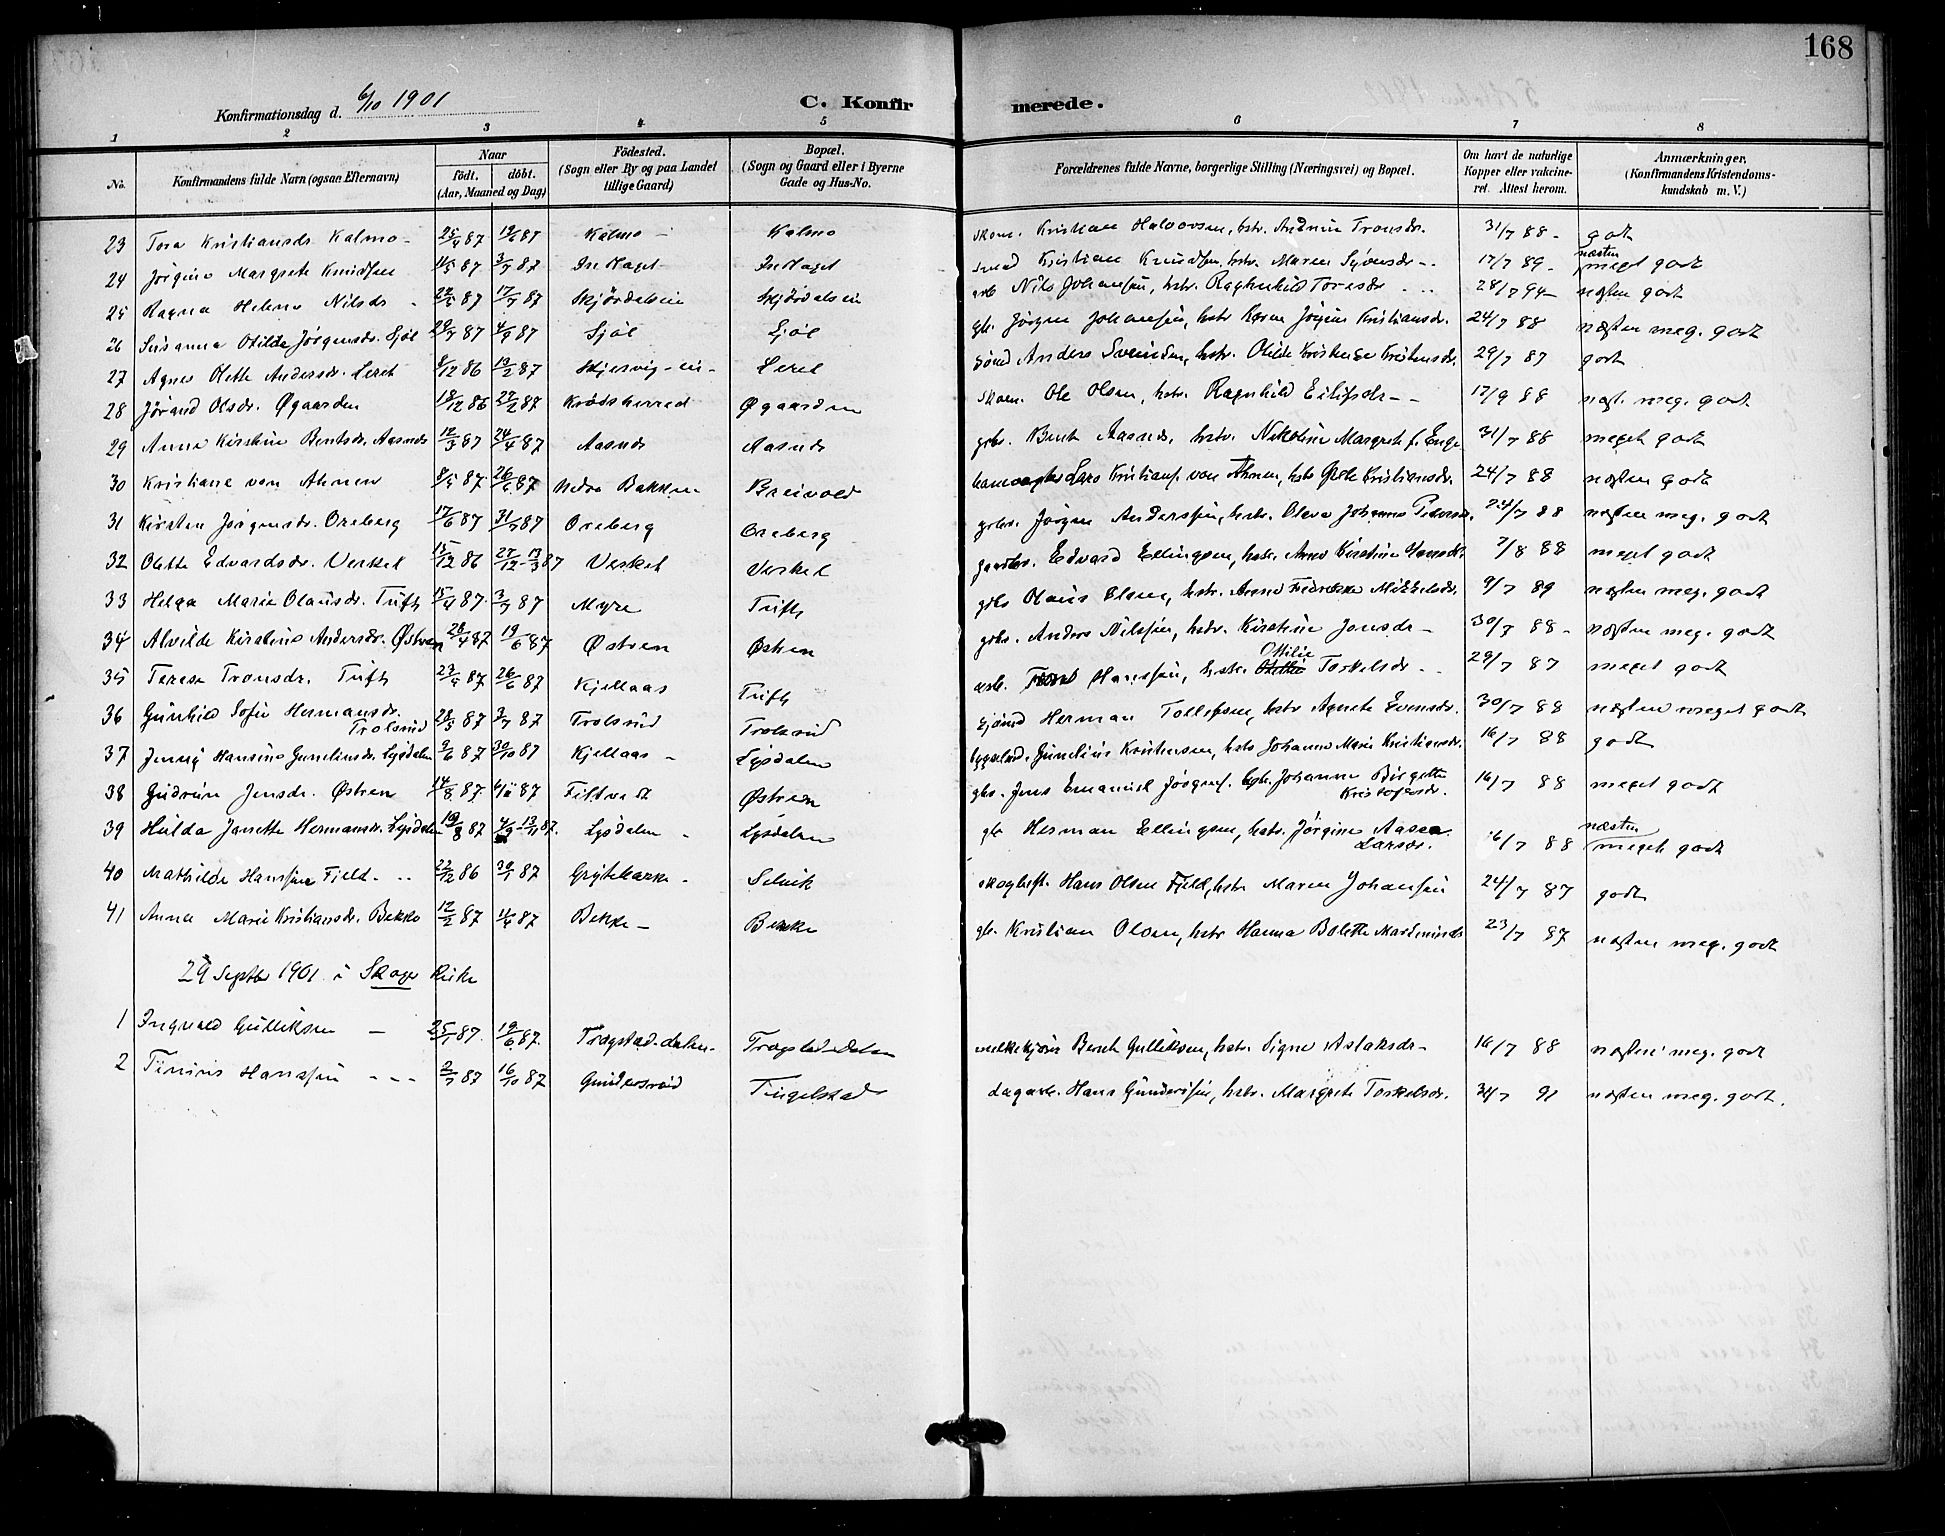 168
Konfirmationsdag d. 6/10 1901
C. Konfirmerede.
1 2 3 4 5 6 7 8
No.
Konfirmandens fulde Navn (ogsaa Efternavn)
Naar
födt. döbt.
(Aar, Maaned og Dag)
Födested.
(Sogn eller By og paa Landet
tillige Gaard)
Bopæl.
(Sogn og Gaard eller i Byerne
Gade og Hus-No.
Forældrenes fulde Navne, borgerlige Stilling (Næringsvei) og Bopæl.
Om havt de naturlige
Kopper eller vakcine-
ret. Attest herom.
Anmærkninger.
(Konfirmandens Kristendoms-
kundskab m. V.)
23 Tora Kristiansdr. Kalmo - 25/4 87 19/6 87 Kalmo - Kalmo skom. Kristian Halvorsen, hstr. Andrine Tronsdr. 31/7 88 - godt
24 Jörgine Margrete Knudsen 11/5 87 3/7 87 In Haget Kristian Knudsen, hstr. Maren Syvensdr - 17/7 89 - næsten meget godt
25 Ragna Helene Nilsdr. 22/5 87 17/7 87 Skjördalseie Skjördalseie arb Nils Johansen, hstr. Ragnhild Toresdr 28/7 94 - næsten godt
26 Susanna Otilde Jörgensdr. Sjöl 29/7 87 4/9 87 Sjöl Sjöl gb. Jörgen Johansen, hstr Karen Jörgine Kristiansdr. 24/7 88 næsten meg. godt
27 Agnes Olette Andersdr. Leret 8/12 86 13/2 87 Skjersvig-eie- Leret Anders Svendsen, hstr. Otilde Kristensdr. 29/7 87 godt
28 Jörand Olsdr. Øgaarden 18/12 86 27/2 87 Krödsherred Øgaarden skom. Ole Olsen, hstr. Ragnhild Eilifsdr - - 17/9 88 næst. meg. godt
29 Anna Kirstine Bentsdr. Aasnes 12/3 87 24/4 87 Aasnes Aasnes gbr. Bent Aasnes, hstr. Nikoline Margrete f. Enge 31/7 88 meget godt
30 Kristiane von Ahnen 8/5 87 26/6 87 Nedre Bakken Breivold Lars Kristians. von Ahnen, hstr Kristiansdr. 24/7 88 næsten godt
31 Kirsten Jörgensdr. Oreberg 17/6 87 31/7 87 Oreberg Oreberg gbr. Jörgen Anderssen, hstr. Oleva Johanne Pedersdr. 24/7 88 næsten meg. godt
32 Olette Edvardsdr. Verket 15/12 86 27/12 - 13/3 87 Verket Verket gaardbr. Edvard Ellingsen, hstr. Anne Kirstine Hansdr. 2/8 88 meget godt
33 Helga Marie Olausdr. Tufte 15/4 87 3/7 87 Myre Tufte gbr Olaus Olsen, hstr. Anne Fredrikke Mikkelsdr. 9/7 89 næsten meg. godt
34 Alvilde Kirstine Andersdr. Østren 28/4 87 19/6 87 Østren Østren gbr. Anders Nilssen, hstr. Kirstine Jonsdr - 30/7 88 - næsten meg. godt
35 Terese Tronsdr. Tufte 23/4 87 26/6 87 Kjellaas Tufte arb. Hanssen, hstr. Ottilie Torkelsdr. 29/7 87 meget godt
36 Gunhild Sofie Hermansdr. Trolsrud 28/5 87 3/7 87 Trolsrud Trolsrud Herman Tollefsen, hstr Agnete Evensdr. 30/7 88 næsten meget godt
37 Jenny Hansine Gunelinsdr. Lysdalen 9/6 87 30/10 87 Kjellaas - Lysdalen Kristensen, hstr Johanne Marie Kristiansdr. 16/7 88 godt
38 Gudrun Jensdr. Østren 14/8 87 4/11 87 Filtvedt Østren gbr. Jens Emanuel Jörgens. hstr. Johanne Birgitte Kristofersdr. 16/7 88 meget godt
39 Hulda Janette Hermansdr. Lysdalen 19/8 87 4/9 - 13/11 87. Lysdalen - Lysdalen gbr Herman Ellingsen, hstr. Jörgine Aasea Larsdr. 16/7 88 næsten meget godt
40 Mathilde Hanssen Fjeld - 22/12 86 30/1 87 Grytebakke - Selvik Hans Olsen Fjeld, hstr. Maren Johansen 24/7 87 godt
41 Anna Marie Kristiansdr. Bekke 12/2 87 11/4 87 Bekke - Bekke gbr. Kristian Olsen, hstr Hanna Bolette Martinusdr 23/7 87 næsten meg. godt
29 Septbr 1901 i Skoger Kirke
1 Ingvald Gulliksen - 25/1 87. 19/6 87. Tragstad-dalen - Tragstad-Dalen Bernt Gulliksen, hstr. Signe Aslaksdr - 16/7 88 næsten meg. godt
2 Tinius Hanssen - - - 2/7 87 16/10 87 Gundersrud Tingelstad dagarb. Hans Gunderssen, hstr. Margrete Torkelsdr. 31/7 91 næsten meg. godt.